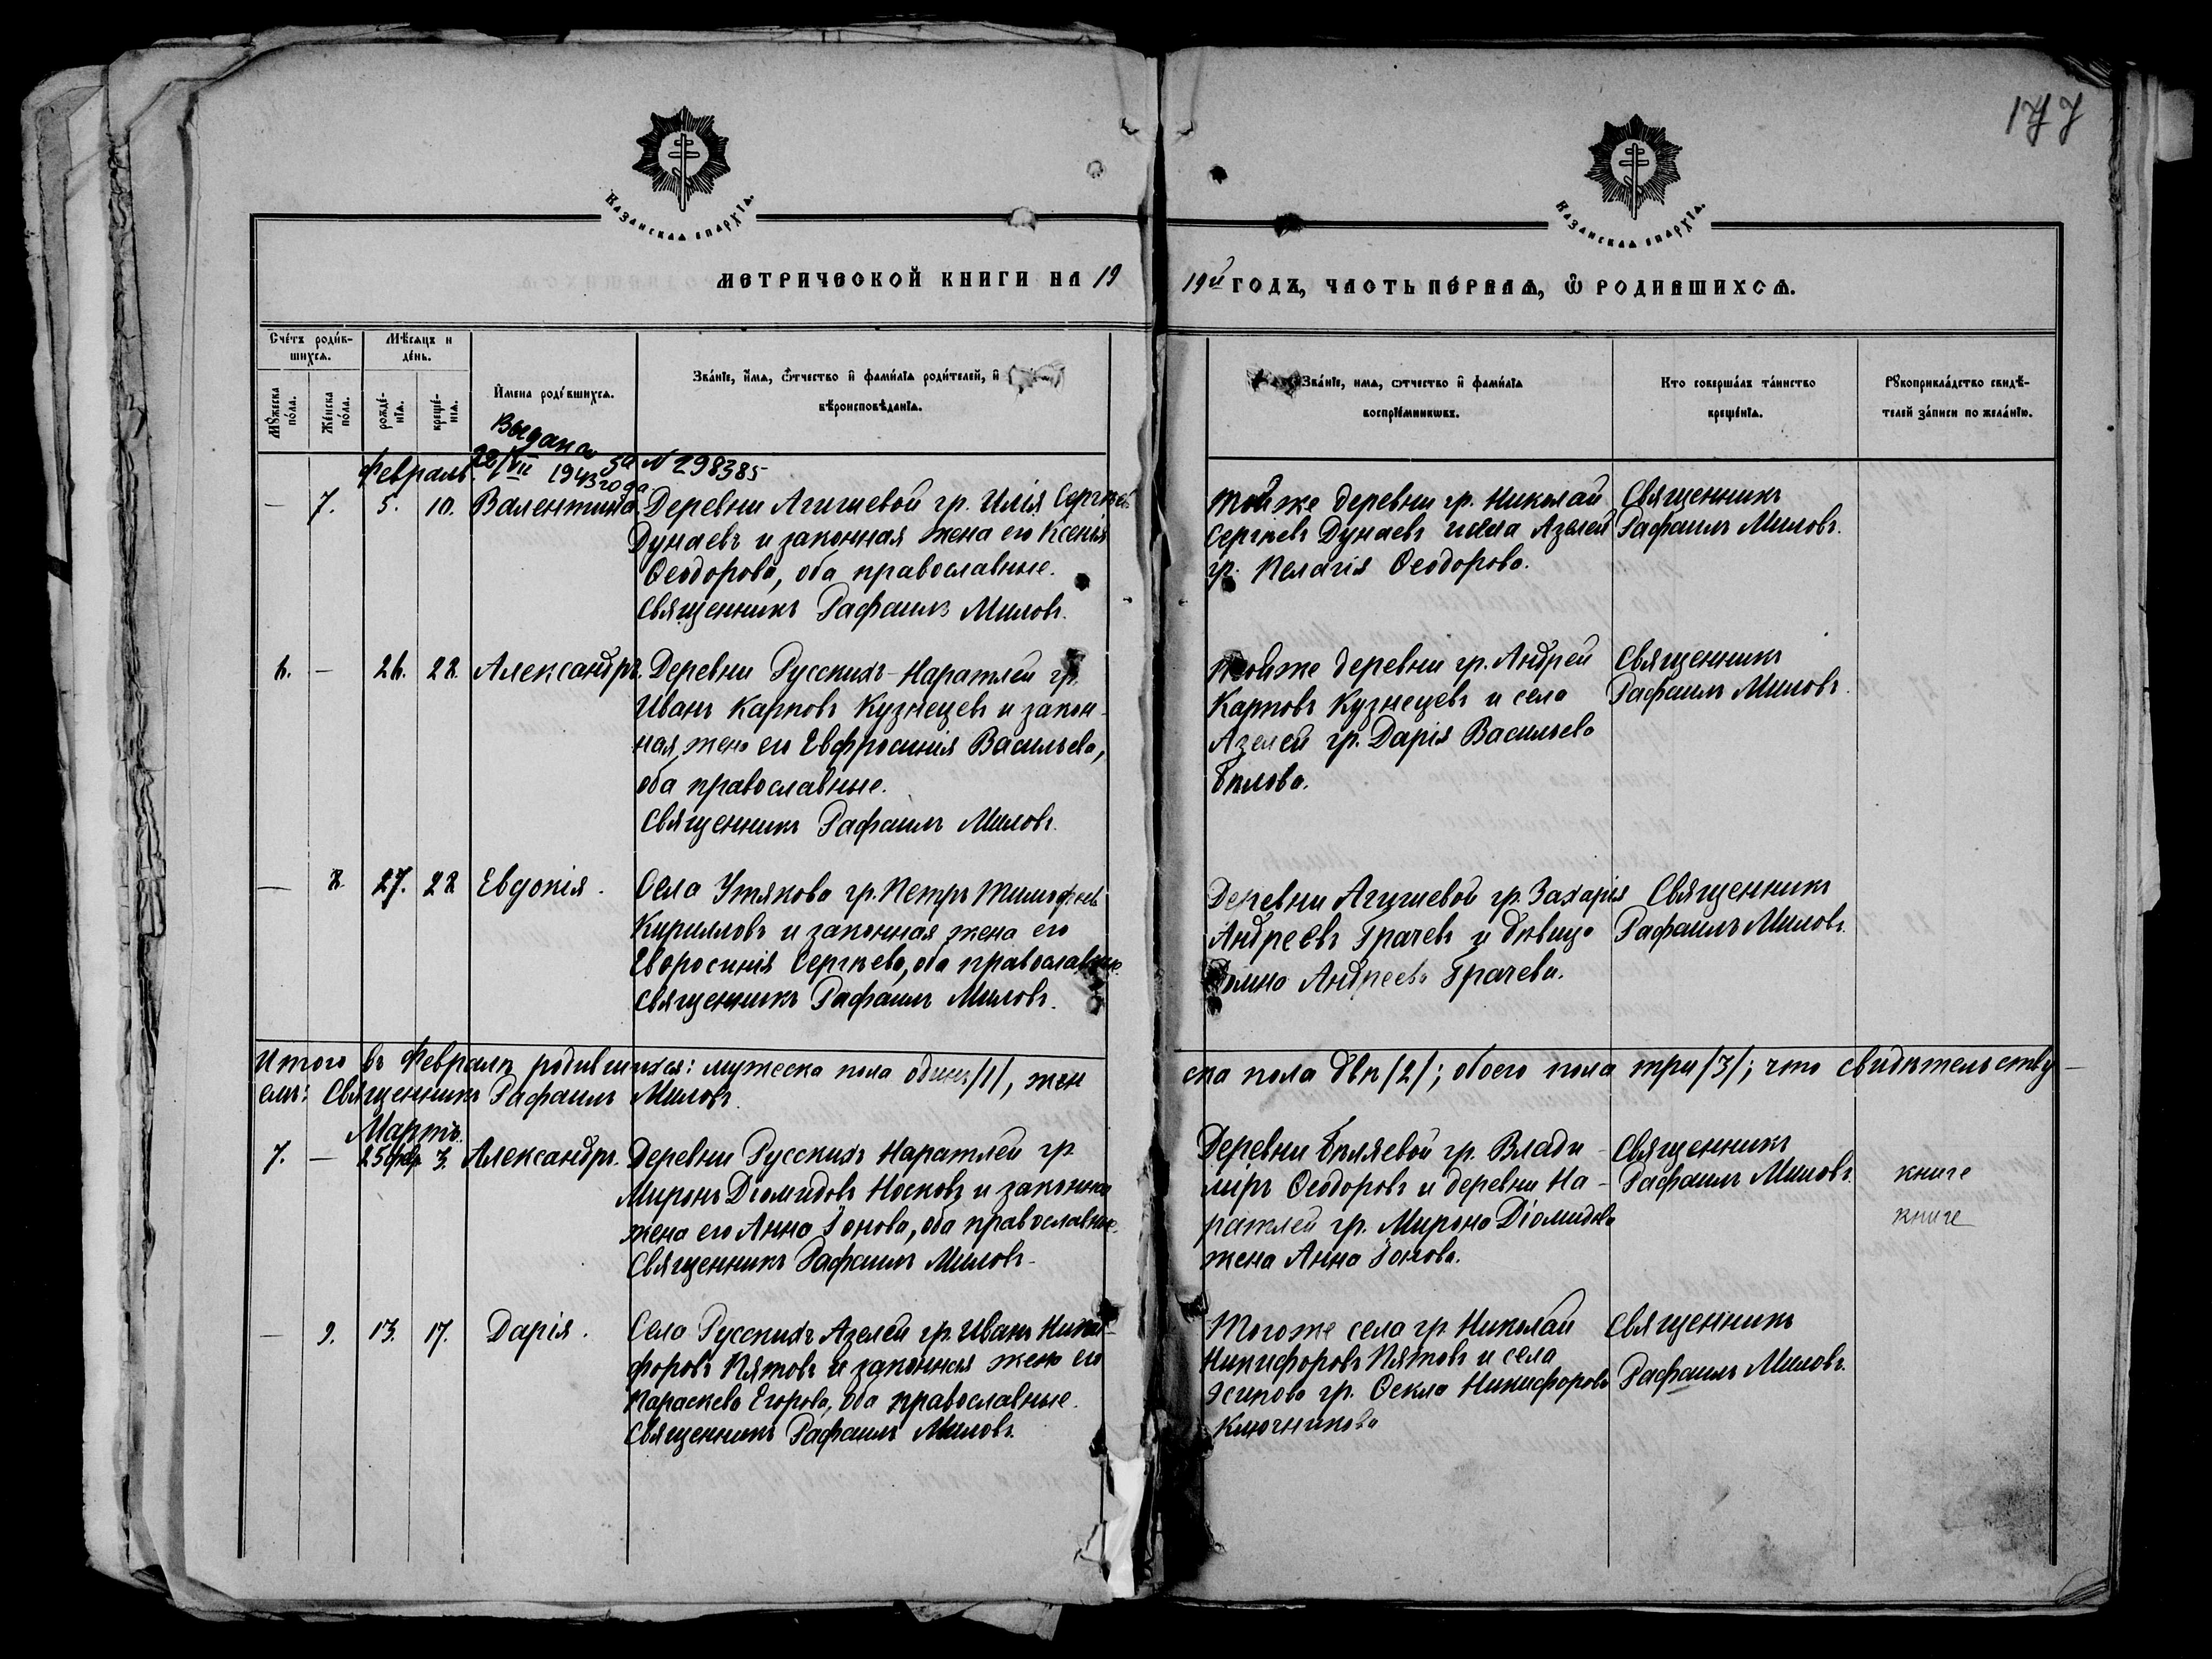 177
Казанская епархїѧ.
Казанская епархїѧ.
МЕТРИЧЕСКОЙ КНИГИ НА 19
19й ГОДЪ, ЧАСТЬ ПЕРВАѦ, Ѡ РОДИВШИХСѦ.
Счетъ родив-
шихсѧ.
Мѣсѧцъ и
день.
Мꙋжеска
пола.
Женска
пола.
рожде-
нїѧ.
креще-
нїѧ.
Имена родившихсѧ.
Званїе, имѧ, ѿчество и фамилїѧ родителей, и
вѣроисповѣданїѧ.
Званїе, имѧ, ѿчество и фамилїѧ
воспрїемникѡвъ.
Кто совершалъ таинство
крещенїѧ.
Рꙋкоприкладство свидѣ-
телей записи по желанїю.
Выдана
22/VII 1943 года за N 298385
Февраль.
— 7. 5. 10. Валентина. Деревни Агишевой гр. Илія Сергѣевъ
Дунаевъ и законная жена его Ксенія
Ѳеодорова, оба православные.
Священникъ Рафаилъ Миловъ.
Тойже деревни гр. Николай
Сергѣевъ Дунаевъ и села Азелей
гр. Пелагія Ѳеодорова.
Священникъ
Рафаилъ Миловъ.
6. — 26. 28. Александръ. Деревни Русскихъ-Наратлей гр.
Иванъ Карповъ Кузнецевъ и закон-
ная жена его Евфросинія Васильева,
оба православные.
Священникъ Рафаилъ Миловъ.
Тойже деревни гр. Андрей
Карповъ Кузнецевъ и села
Азелей гр. Дарія Васильева
Бѣлова.
Священникъ
Рафаилъ Миловъ.
— 8. 27. 28 Евдокія. Села Утякова гр. Петръ Тимофѣевъ
Кирилловъ и законная жена его
Евфросинія Сергѣева, оба православные
Священникъ Рафаилъ Миловъ.
Деревни Агишевой гр. Захарія
Андреевъ Грачевъ и дѣвица
Домна Андреева Грачева.
Священникъ
Рафаилъ Миловъ.
Итого въ Февралѣ родившихся: мужеска пола одинъ /1/, жен
ска пола двѣ /2/; обоего пола три /3/; что свидѣтельству-
емъ: Священникъ Рафаилъ Миловъ.
Мартъ.
7. — 25 фев 3. Александръ. Деревни Русскихъ Наратлей гр.
Миронъ Діомидовъ Носковъ и законна
жена его Анна Іонова, оба православные.
Священникъ Рафаилъ Миловъ.
Деревни Бѣляевой гр. Влади-
міръ Ѳеодоровъ и деревни На-
ратлей гр. Мирона Діомидова
жена Анна Іонова.
Священникъ
Рафаилъ Миловъ.
книге
книге
— 9. 13. 17. Дарія. Села Русскихъ Азелей гр. Иванъ Ники-
форовъ Пятовъ и законная жена его
Параскева Егорова, оба православные.
Священникъ Рафаилъ Миловъ.
Тогоже села гр. Николай
Никифоровъ Пятовъ и села
Эсипова гр. Ѳекла Никифорова
Ключникова
Священникъ
Рафаилъ Миловъ.